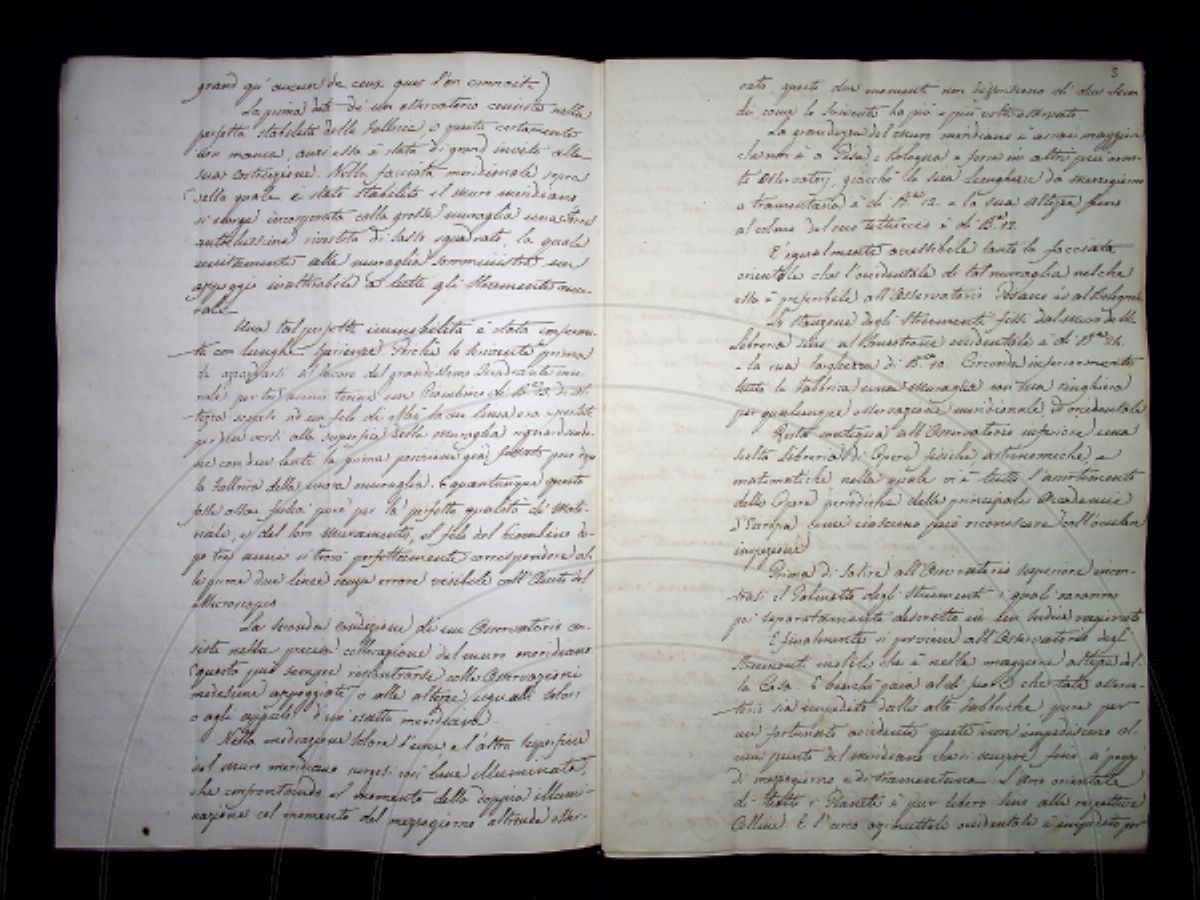 grand qu'aucun de ceux que l'on connoit)
La prima dote di un osservatorio consiste nella
perfetta stabilità della Fabbrica e questa certamente
non manca, anzi essa è stata di grand'invito alla
sua costruzione. Nella facciata meridionale sopra
della quale è stato stabilito il muro meridiano
si erge incorporata colla grossa muraglia una Torre
antichissima rivestita di sasso squadrato, la quale
unitamente alla muraglia somministra un
appoggio inalterabile a tutti gli Stromenti mu-
rali.
Una tal perfetta immobilità è stata conferma-
ta con lunghe sperienze. Poichè lo scrivente prima
di azzardarsi al lavoro del grandissimo Quadrante mu-
rale per tre anni tenne un Piombino di B.a 13. di al-
tezza sospeso ad un filo di
per due versi alla superficie della muraglia riguardando-
ne con due lenti la prima posizione già fissata poco dopo
la Fabbrica della nuova muraglia. E quantunque questa
fosse allora pure per la perfetta qualità de' Mate-
riali, e del loro muramento, il filo del Piombino do-
po tre anni si trovò perfettamente corrispondere al-
le prime due linee senza errore visibile coll'aiuto del
Microscopio
La seconda condizione di un Osservatorio con-
siste nella precisa collocazione del muro meridiano
e questa può sempre riscontrarsi colle Osservazioni
medesime appoggiate o alle altezze eguali solari
o agli appulsi d'un'esatta meridiana.
Nella mediazione solare l'una e l'altra superficie
del muro meridiano vergesi così bene illuminata,
che confrontando il momento della doppia illumi-
nazione col momento del mezzogiorno altronde osser-
3
vato, questi due momenti non differiscono di due secon-
di come lo scrivente ha più e più volte osservato.
La grandezza del muro meridiano è assai maggiore
che non è a Pisa e Bologna e forse in altri più orna-
ti Osservatorj, giacchè la sua lunghezza da mezzogiorno
a tramontana è di B.a 12. e la sua altezza fino
al colmo del suo tetto è di B.a 12.
E' egualmente accessibile tanto la facciata
orientale che l'occidentale di tal muraglia nel che
essa è preferibile all'Osservatorio Pisano ed al Bologn
Lo Stanzone degli Stromenti fissi dal muro della
Libreria sino al occidentale è di B.a
e la sua larghezza di B.a 10. Circonda inferiormente
tutta la Fabbrica una muraglia con sua ringhiera
per qualunque osservazione meridionale, ed occidentale
Resta contigua all'Osservatorio inferiore una
scelta Libreria di Opere fisiche astronomiche, e
matematiche nella quale vi è tutto l'assortimento
delle Opere periodiche delle principali Accademie
d'Europa come ciascuno può riconoscere coll'oculare
inspezione
Prima di salire all'Osservatorio superiore incon-
trasi il Gabinetto degli Strumenti i quali saranno
poi separatamente descritti in un Indice ragionato
E finalmente si perviene all'Osservatorio degli
Stromenti mobili che è nella maggiore altezza del-
la Casa. E benchè paia al di fuori che tale osserva-
torio sia impedito dalle alte fabbriche pure per
un fortunato accidente queste non impediscono al-
cun punto del meridiano che si scuopre fino a' poggi
di mezzogiorno e di tramontana. L'arco orientale
di tutti i Pianeti è pur libero sino alle rispettive
Colline. E l'arco azimuttale occidentale è impedito per